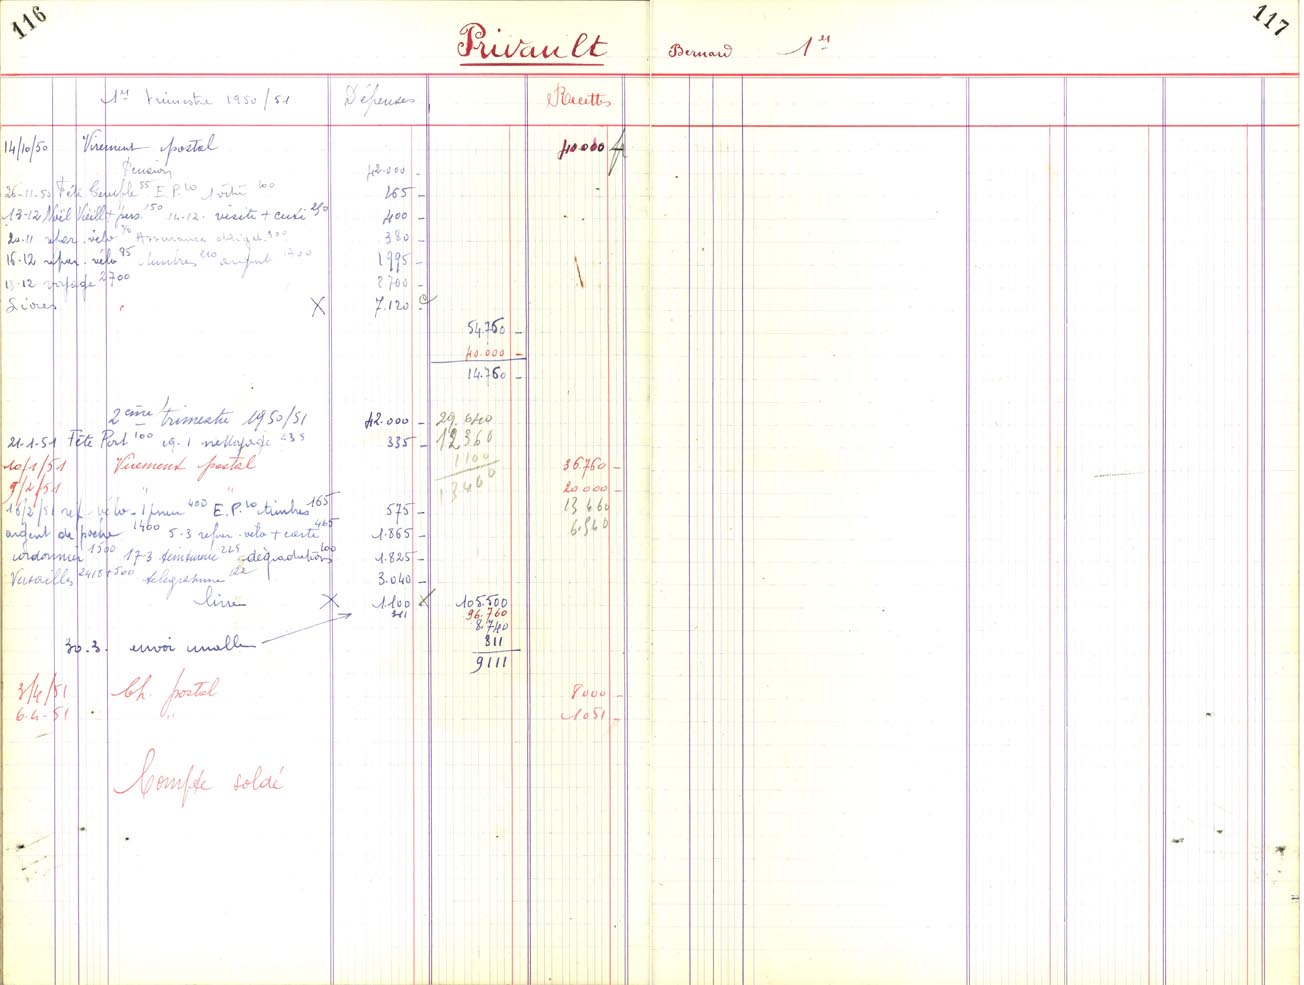 116
117
Privault Bernard 1er
1er trimestre 1950/51 Dépenses Recettes
14/10/50 Virement postal 40000
Pension 42.000 -
26-11-50 Fête Temple 55 E.P. 10 100 165 -
13-12 Noël Vieill + pers. 150 14-12. visite + cuti 250 400 -
20-11 repar. vélo Assurance obligat. 300 380 -
16-12 repar. vélo 85 timbres 210 argent 1700 1995 -
12 voyage 2700 2700 -
Livres X 7.120 -
54.760 -
40.000 -
14.760 -
2ème trimestre 1950/51 42.000 - 29.640
21-1-51 Fête Port 100 19-1 nettoyage 235 335 - 12360
10/1/51 Virement postal 1100 36.760 -
9/2/51 " " 13460 20000 -
16/2/51 rep. vélo - 1 pneu 400 E.P. 10 timbres 165 575 - 13460
argent de poche 1400 5-3 repar. vélo + carte 465 1.865 - 6.540
cordonnier 1500 17-3 teinturerie 225 dégradations 100 1.825 -
Versailles 2418+500 télégramme 122 3.040 -
livre X 1.100 X 105.500
311 96.760
8.740
30.3. envoi malle 311
9111
3/4/51 Ch. postal 8000 -
6-4-51 " 1051 -
Compte soldé